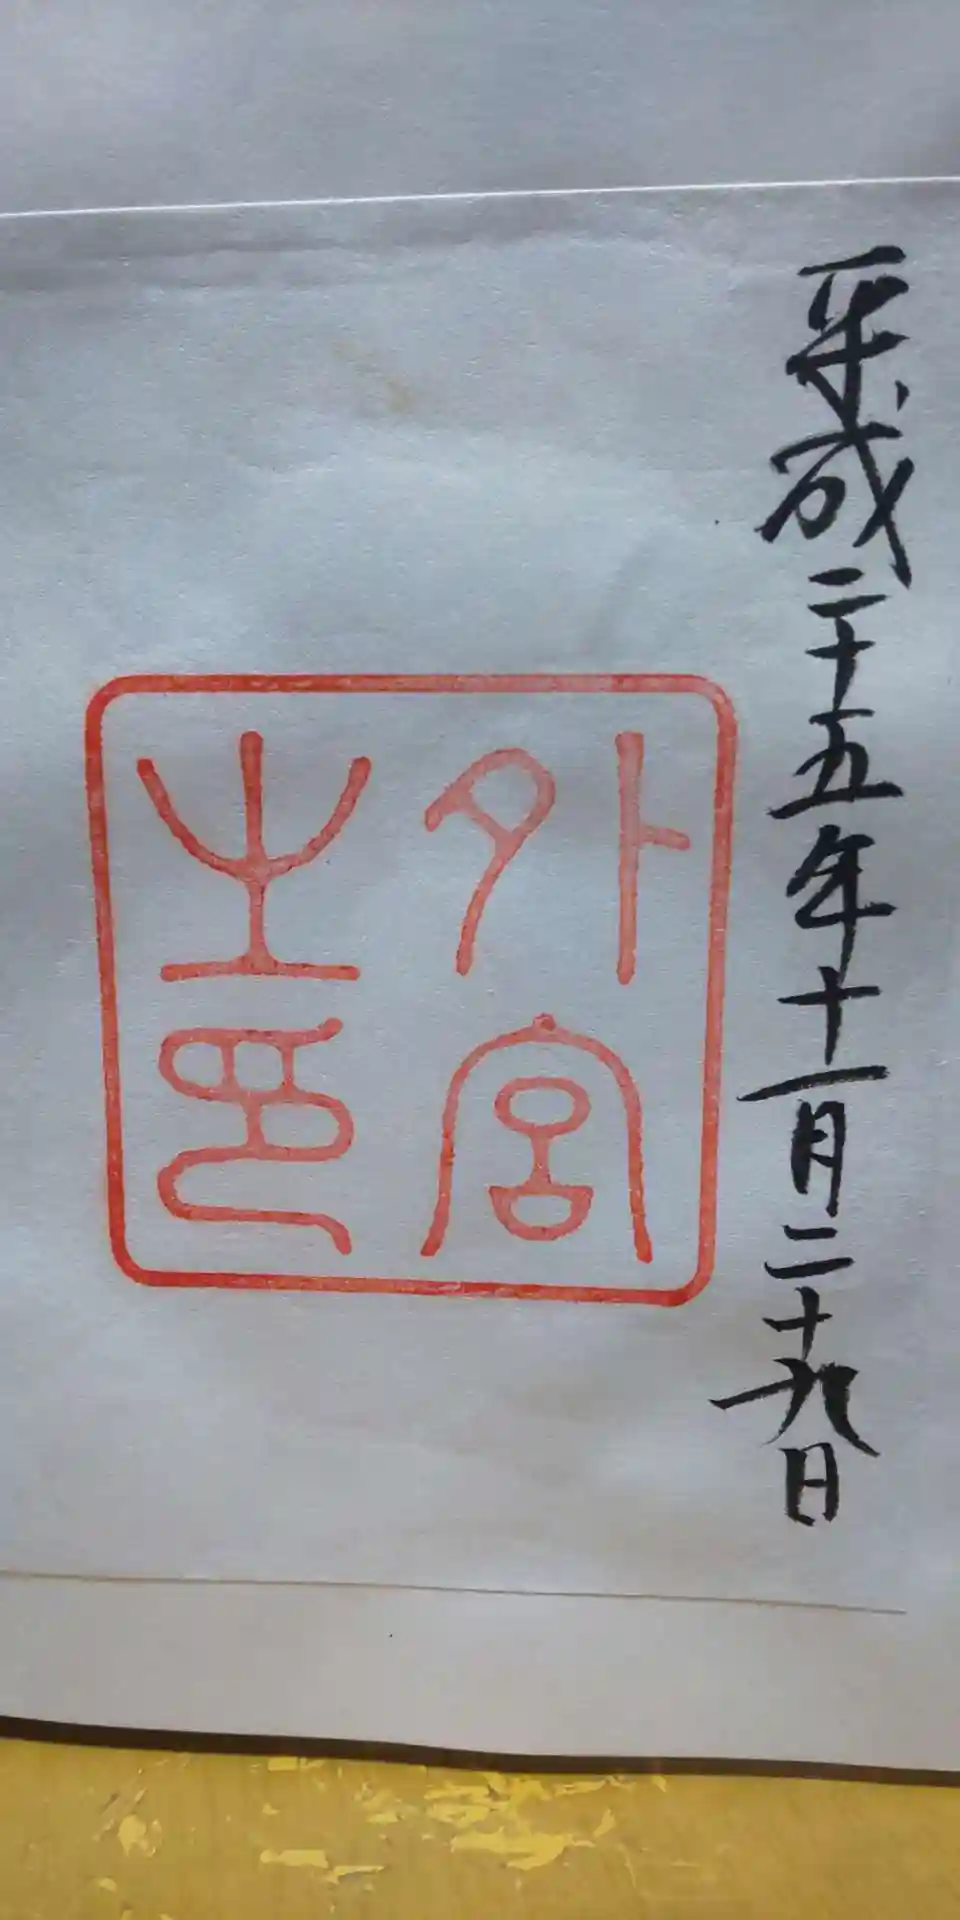 平成二十五年十一月二十九日
外宮
之印